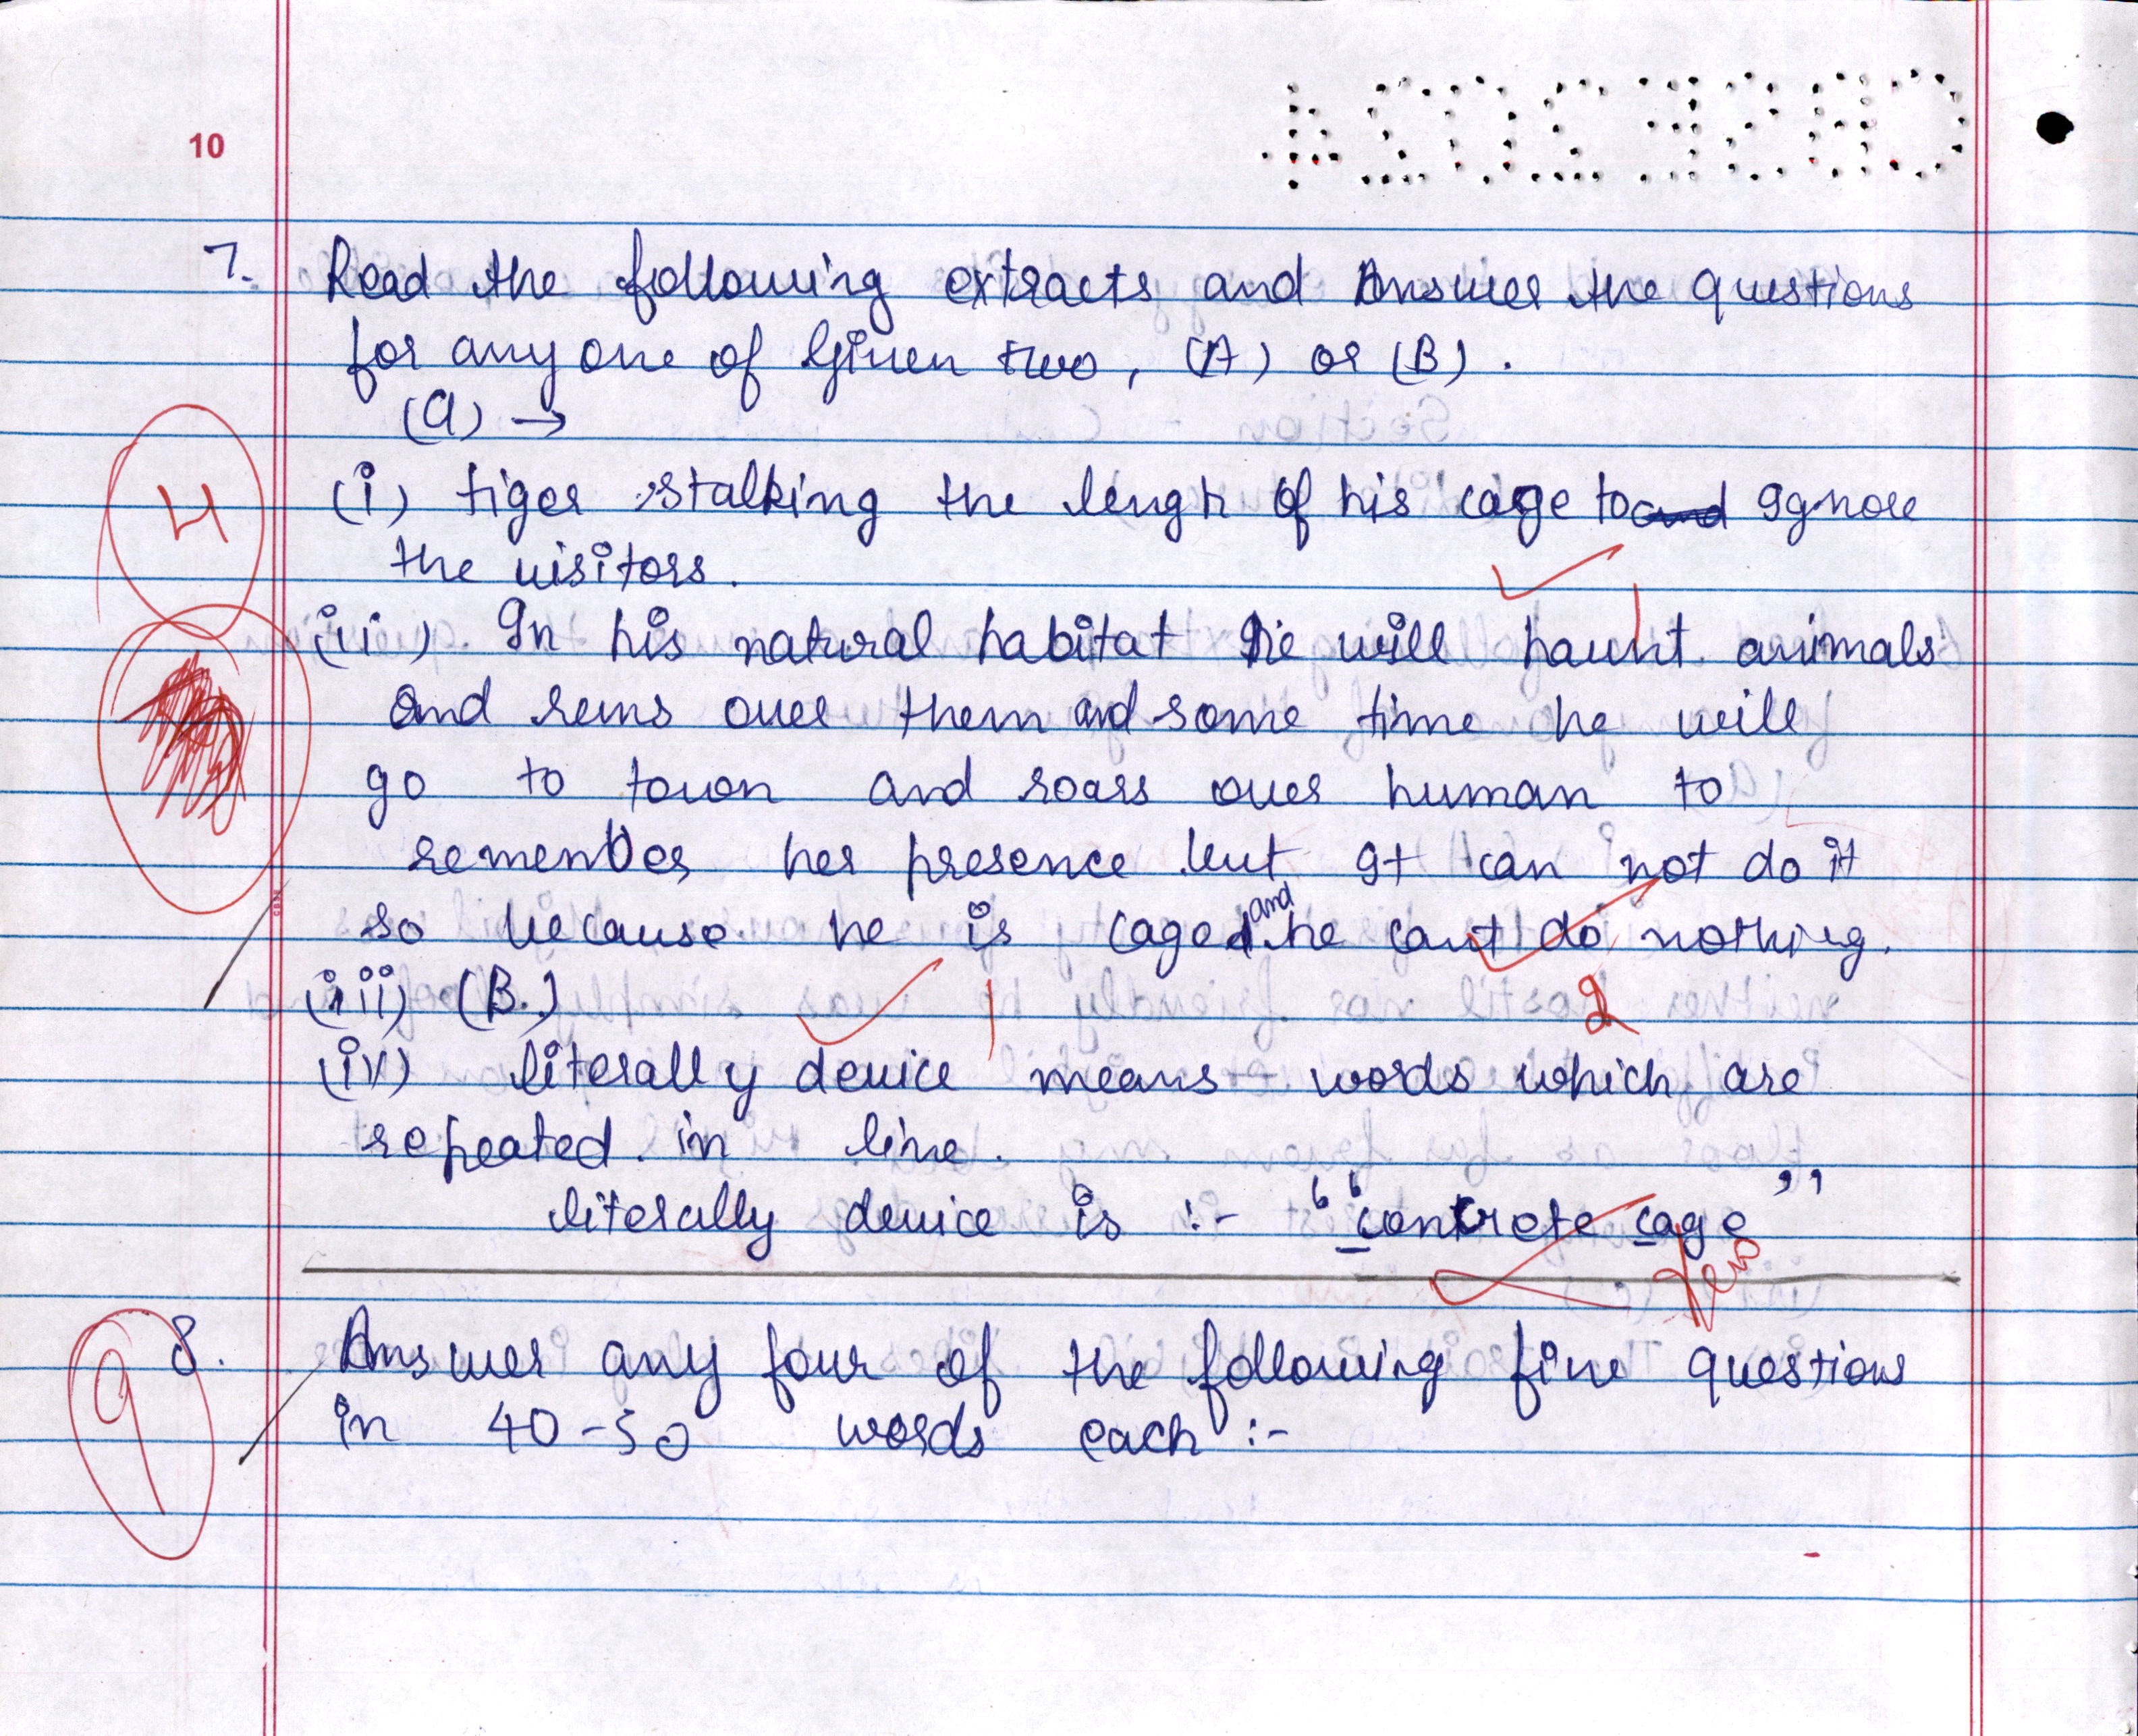 10
CBSE 2024
7. Read the following extracts and Answer the questions
for any one of Given two, (A) or (B).
(a) →
(i) tiger stalking the lengh of his cage to and Ignore
the visitors.
(ii) In his natural habitat he will haunt animals
and runs over them and some time he will
go to town and roars over human to
remember her presence but It can not do it
so because he is caged and he can't do nothing.
(iii) (B.)
(iv) literally device means words which are
repeated in line.
literally device is :- "concrete cage"
8. Answer any four of the following five questions
in 40-50 words each :-
4
1
2
1
Zero
9